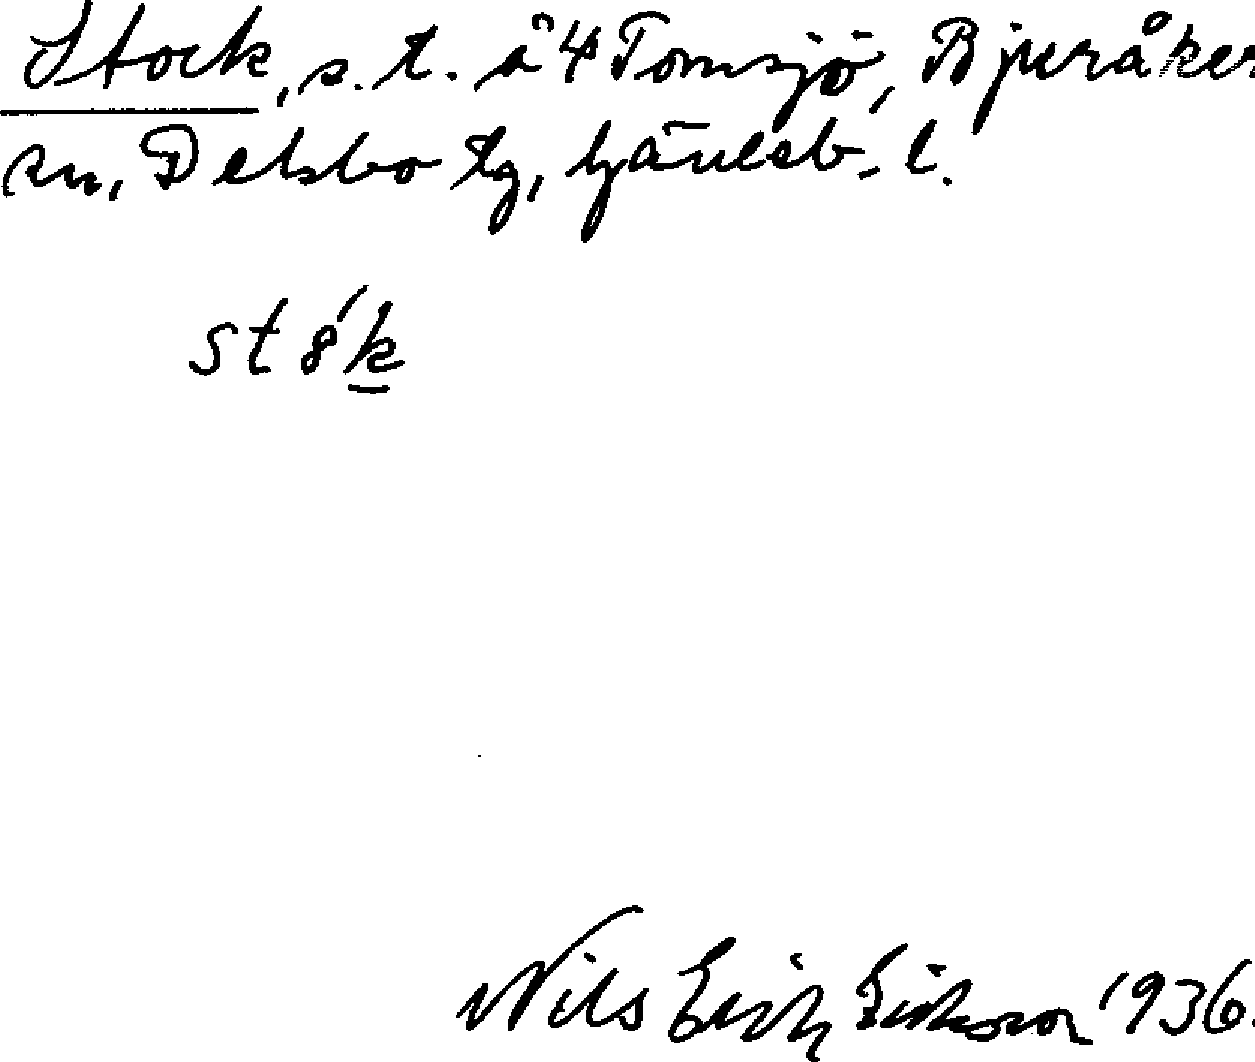 Stock, s. t. å 4 Tomsjö, Bjuråker
sn, Delsbo tg, Gävleb. l.
st 8́k
Nils Erik Eriksson 1936.